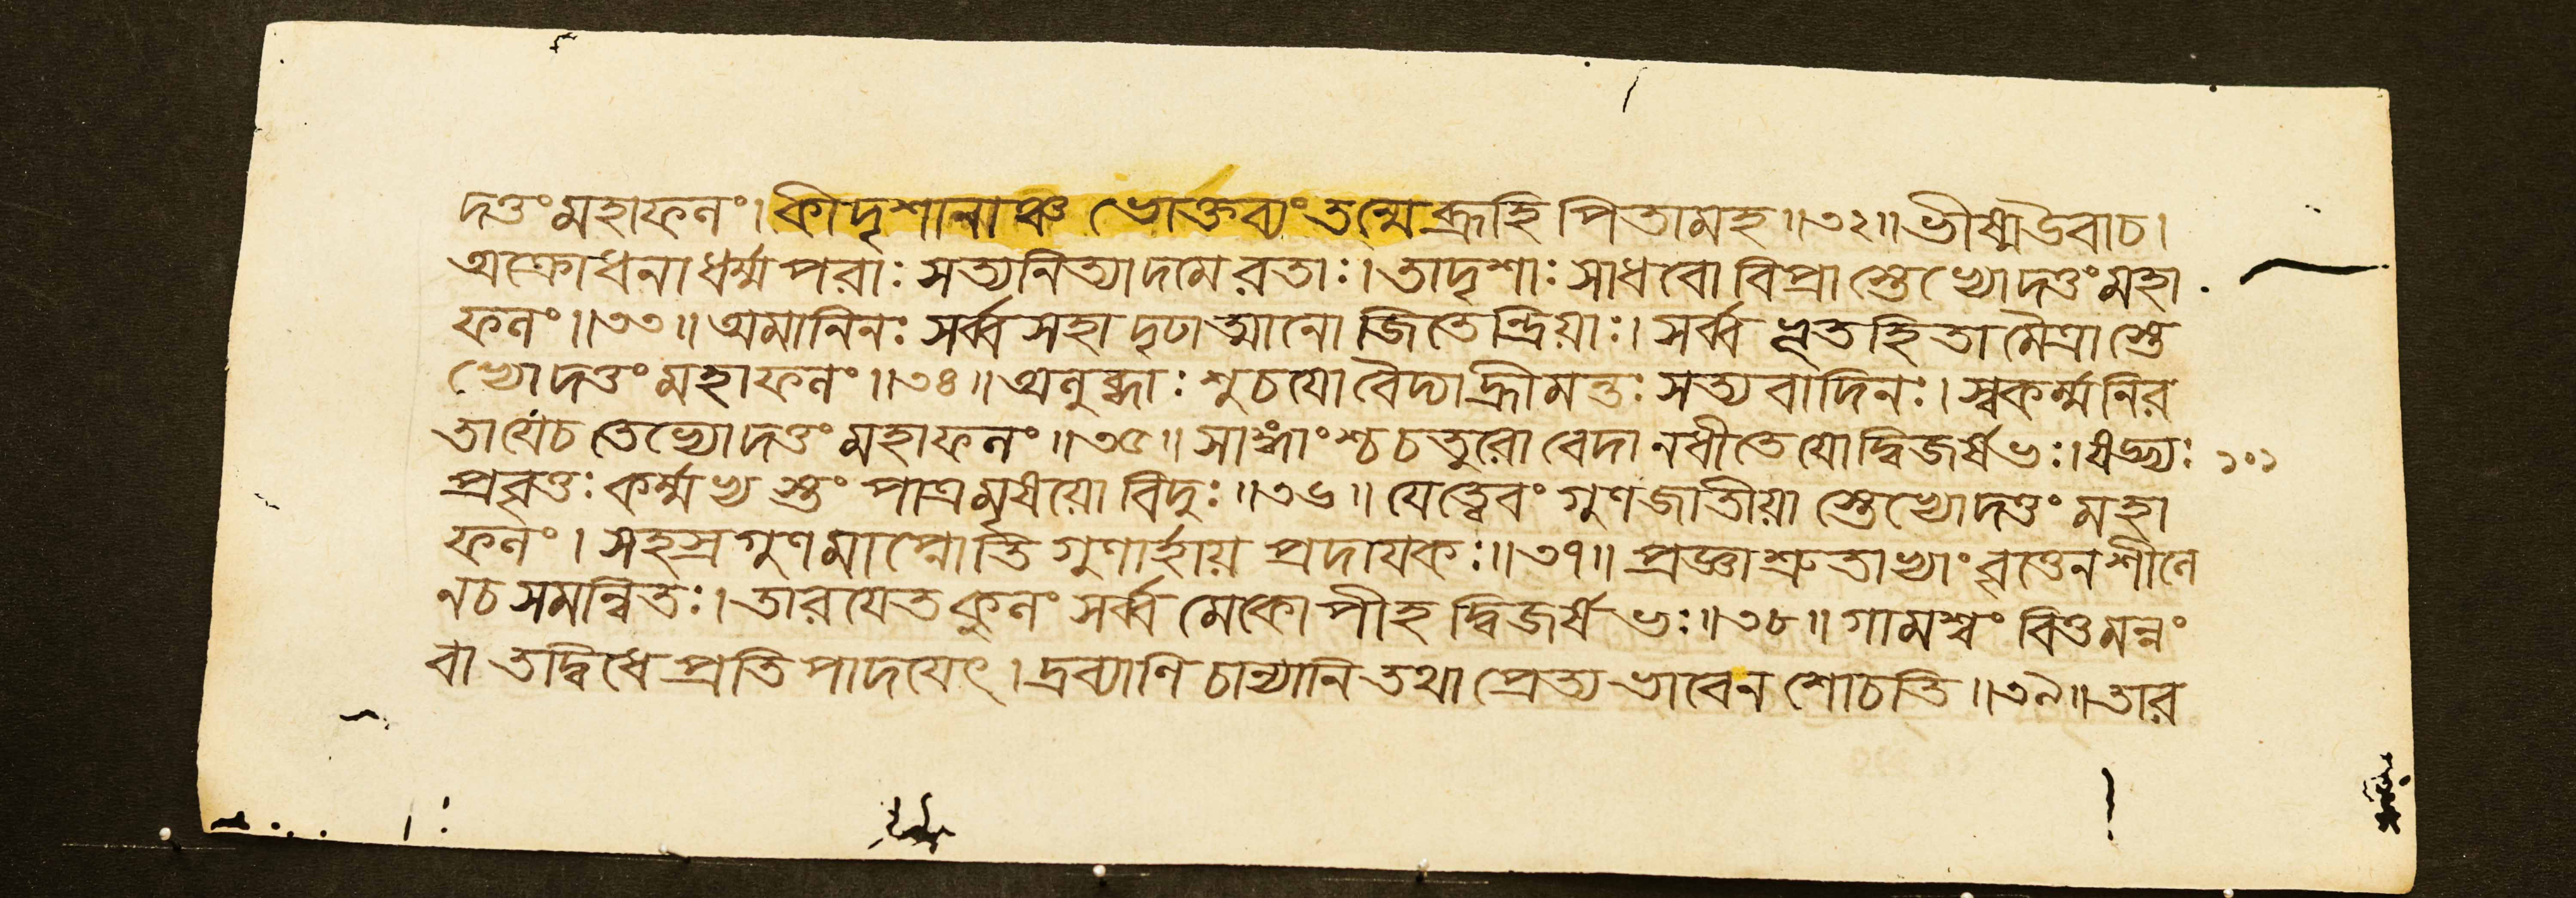 দত্তং মহাফলং। কীদৃশানাঞ্চ ভোক্তব্যং তন্মে ব্রূহি পিতামহ॥৩২॥ ভীষ্ম উবাচ।
অক্রোধনা ধর্ম্মপরাঃ সত্যনিত্যা দমে রতাঃ। তাদৃশাঃ সাধবো বিপ্রাস্তেভ্যো দত্তং মহা
ফলং॥৩৩॥ অমানিনঃ সর্ব্বসহা দৃঢাত্মানো জিতেন্দ্রিয়াঃ। সর্ব্বভূতহিতা মৈত্রাস্তে
ভ্যো দত্তং মহাফলং॥৩৪॥ অলুব্ধাঃ শুচযো বৈদ্যা হ্রীমন্তঃ সত্যবাদিনঃ। স্বকর্ম্মনির
তা যে চ তেভ্যো দত্তং মহাফলং॥৩৫॥ সাঙ্গাংশ্চ চতুরো বেদানধীতে যো দ্বিজর্ষভঃ। ষড্ভ্যঃ ১০১
প্রবৃত্তঃ কর্ম্মভ্যস্তং পাত্রমৃষয়ো বিদুঃ॥৩৬॥ যে ত্বেবং গুণজাতীয়াস্তেভ্যো দত্তং মহা
ফলং। সহস্রগুণমাপ্নোতি গুণার্হায় প্রদাযকঃ॥৩৭॥ প্রজ্ঞাশ্রুতাভ্যাং বৃত্তেন শীলে
ন চ সমন্বিতঃ। তারযেত কুলং সর্ব্বমেকোপীহ দ্বিজর্ষভঃ॥৩৮॥ গামশ্বং বিত্তমন্নং
বা তদ্বিধে প্রতিপাদযেৎ। দ্রব্যাণি চান্যানি তথা প্রেত্যভাবে ন শোচতি॥৩৯॥ তার